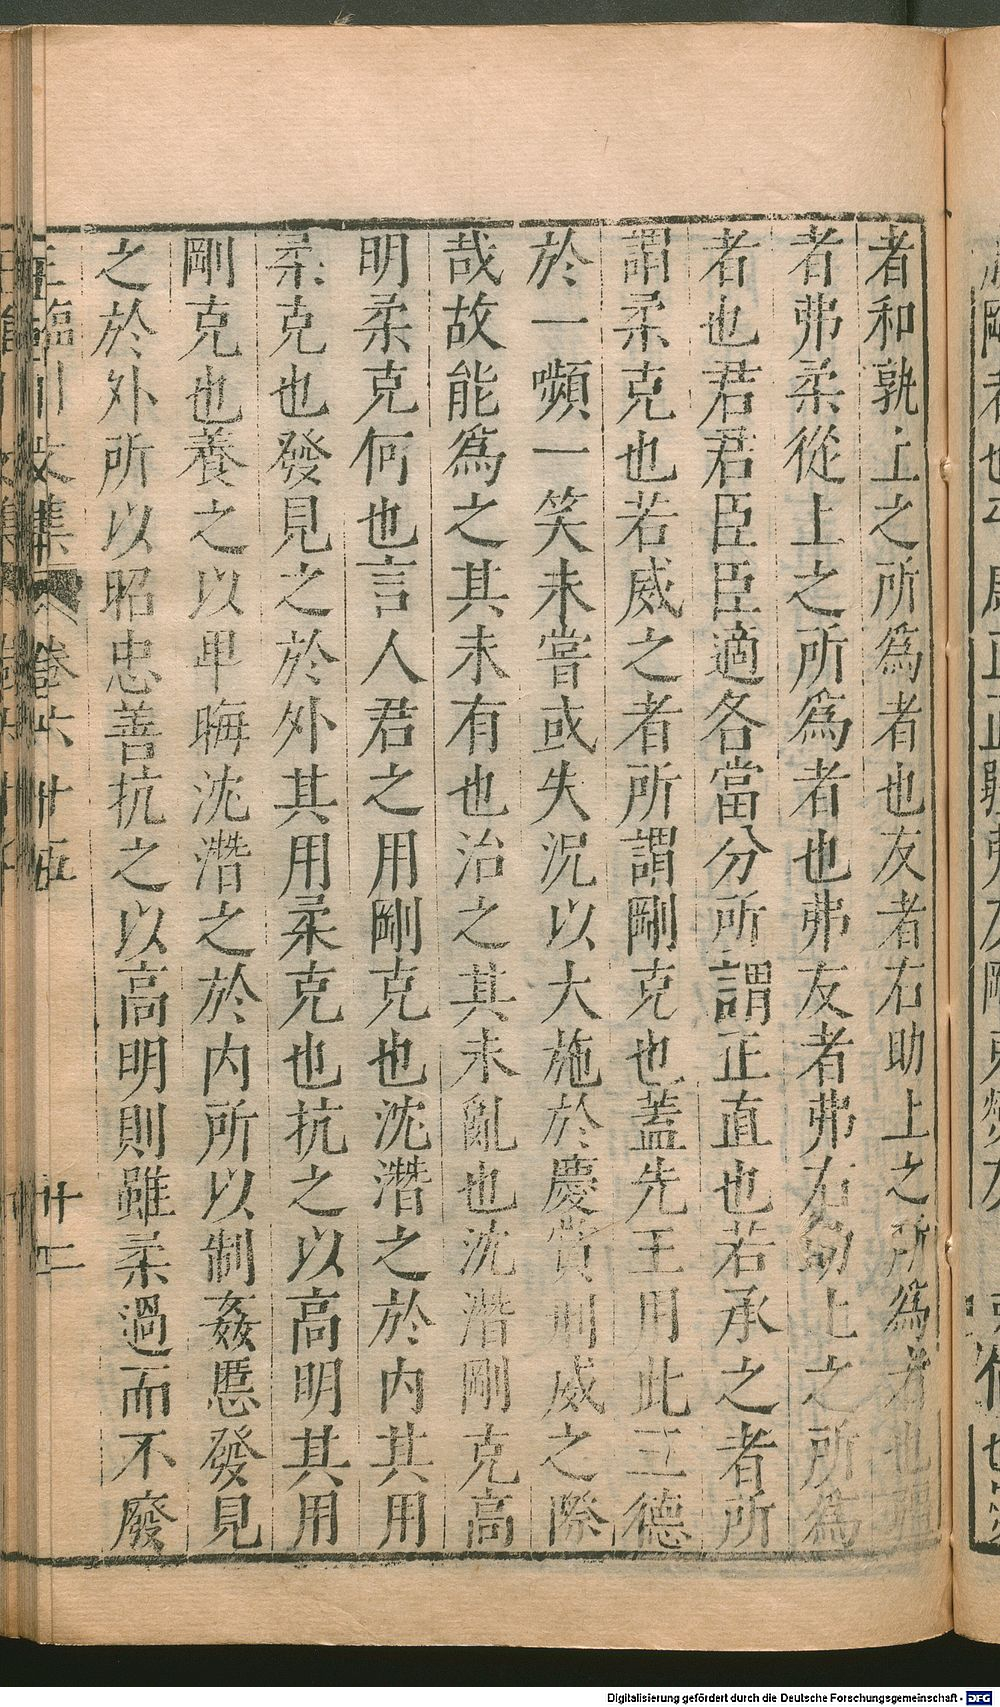 者和孰上之所爲者也友者右助上之所爲者也彊
者弗柔從上之所爲者也弗友者弗右助上之所爲
者也君君臣臣適各當分所謂正直也若承之者所
謂柔克也若威之者所謂剛克也蓋先王用此三德
於一嚬一笑未嘗或失況以大施於慶賞刑威之際
哉故能爲之其未有也治之其未亂也沈潛剛克高
明柔克何也言人君之用剛克也沈潛之於內其用
柔克也發見之於外其用柔克也抗之以高明其用
剛克也養之以卑晦沈潛之於內所以制姦慝發見
之於外所以昭忠善抗之以高明則雖柔過而不廢
王臨川文集 卷六十五 廿二
Digitalisierung gefördert durch die Deutsche Forschungsgemeinschaft - DFG